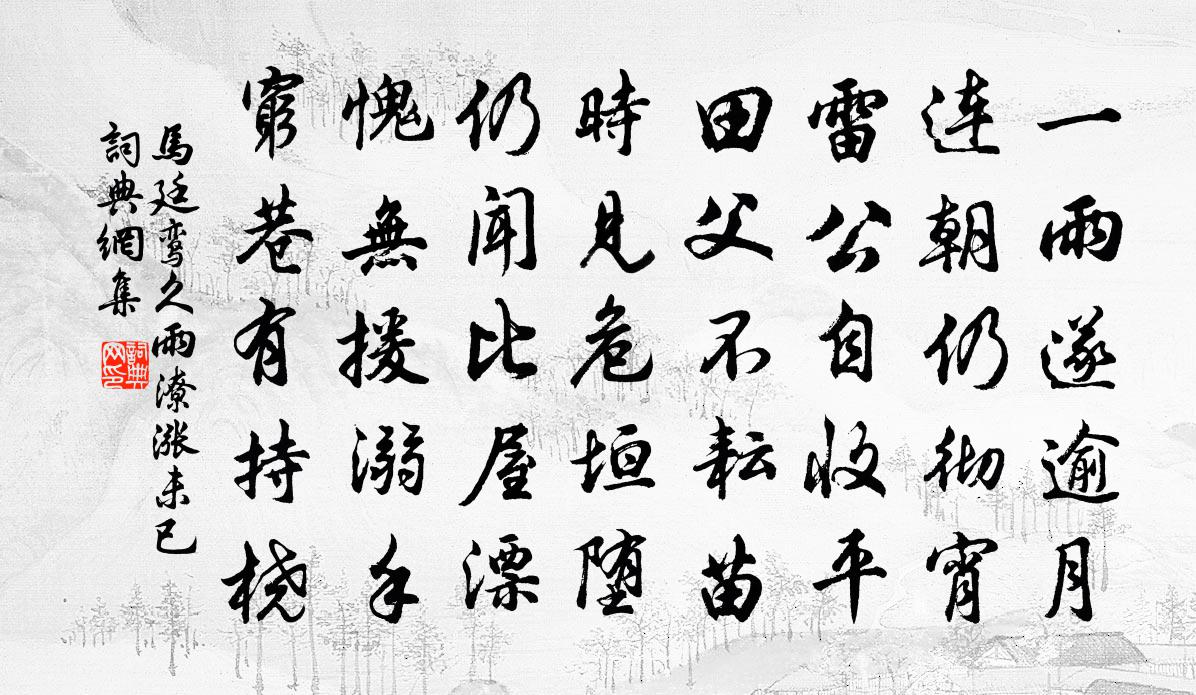 一雨遂逾月
連朝仍彻宵
雷公自收平
田父不耘苗
時見危垣堕
仍闻比屋漂
愧無援溺手
窮巷有持桡
馬廷鸾久雨潦涨未已
詞典網集
詞典
网印